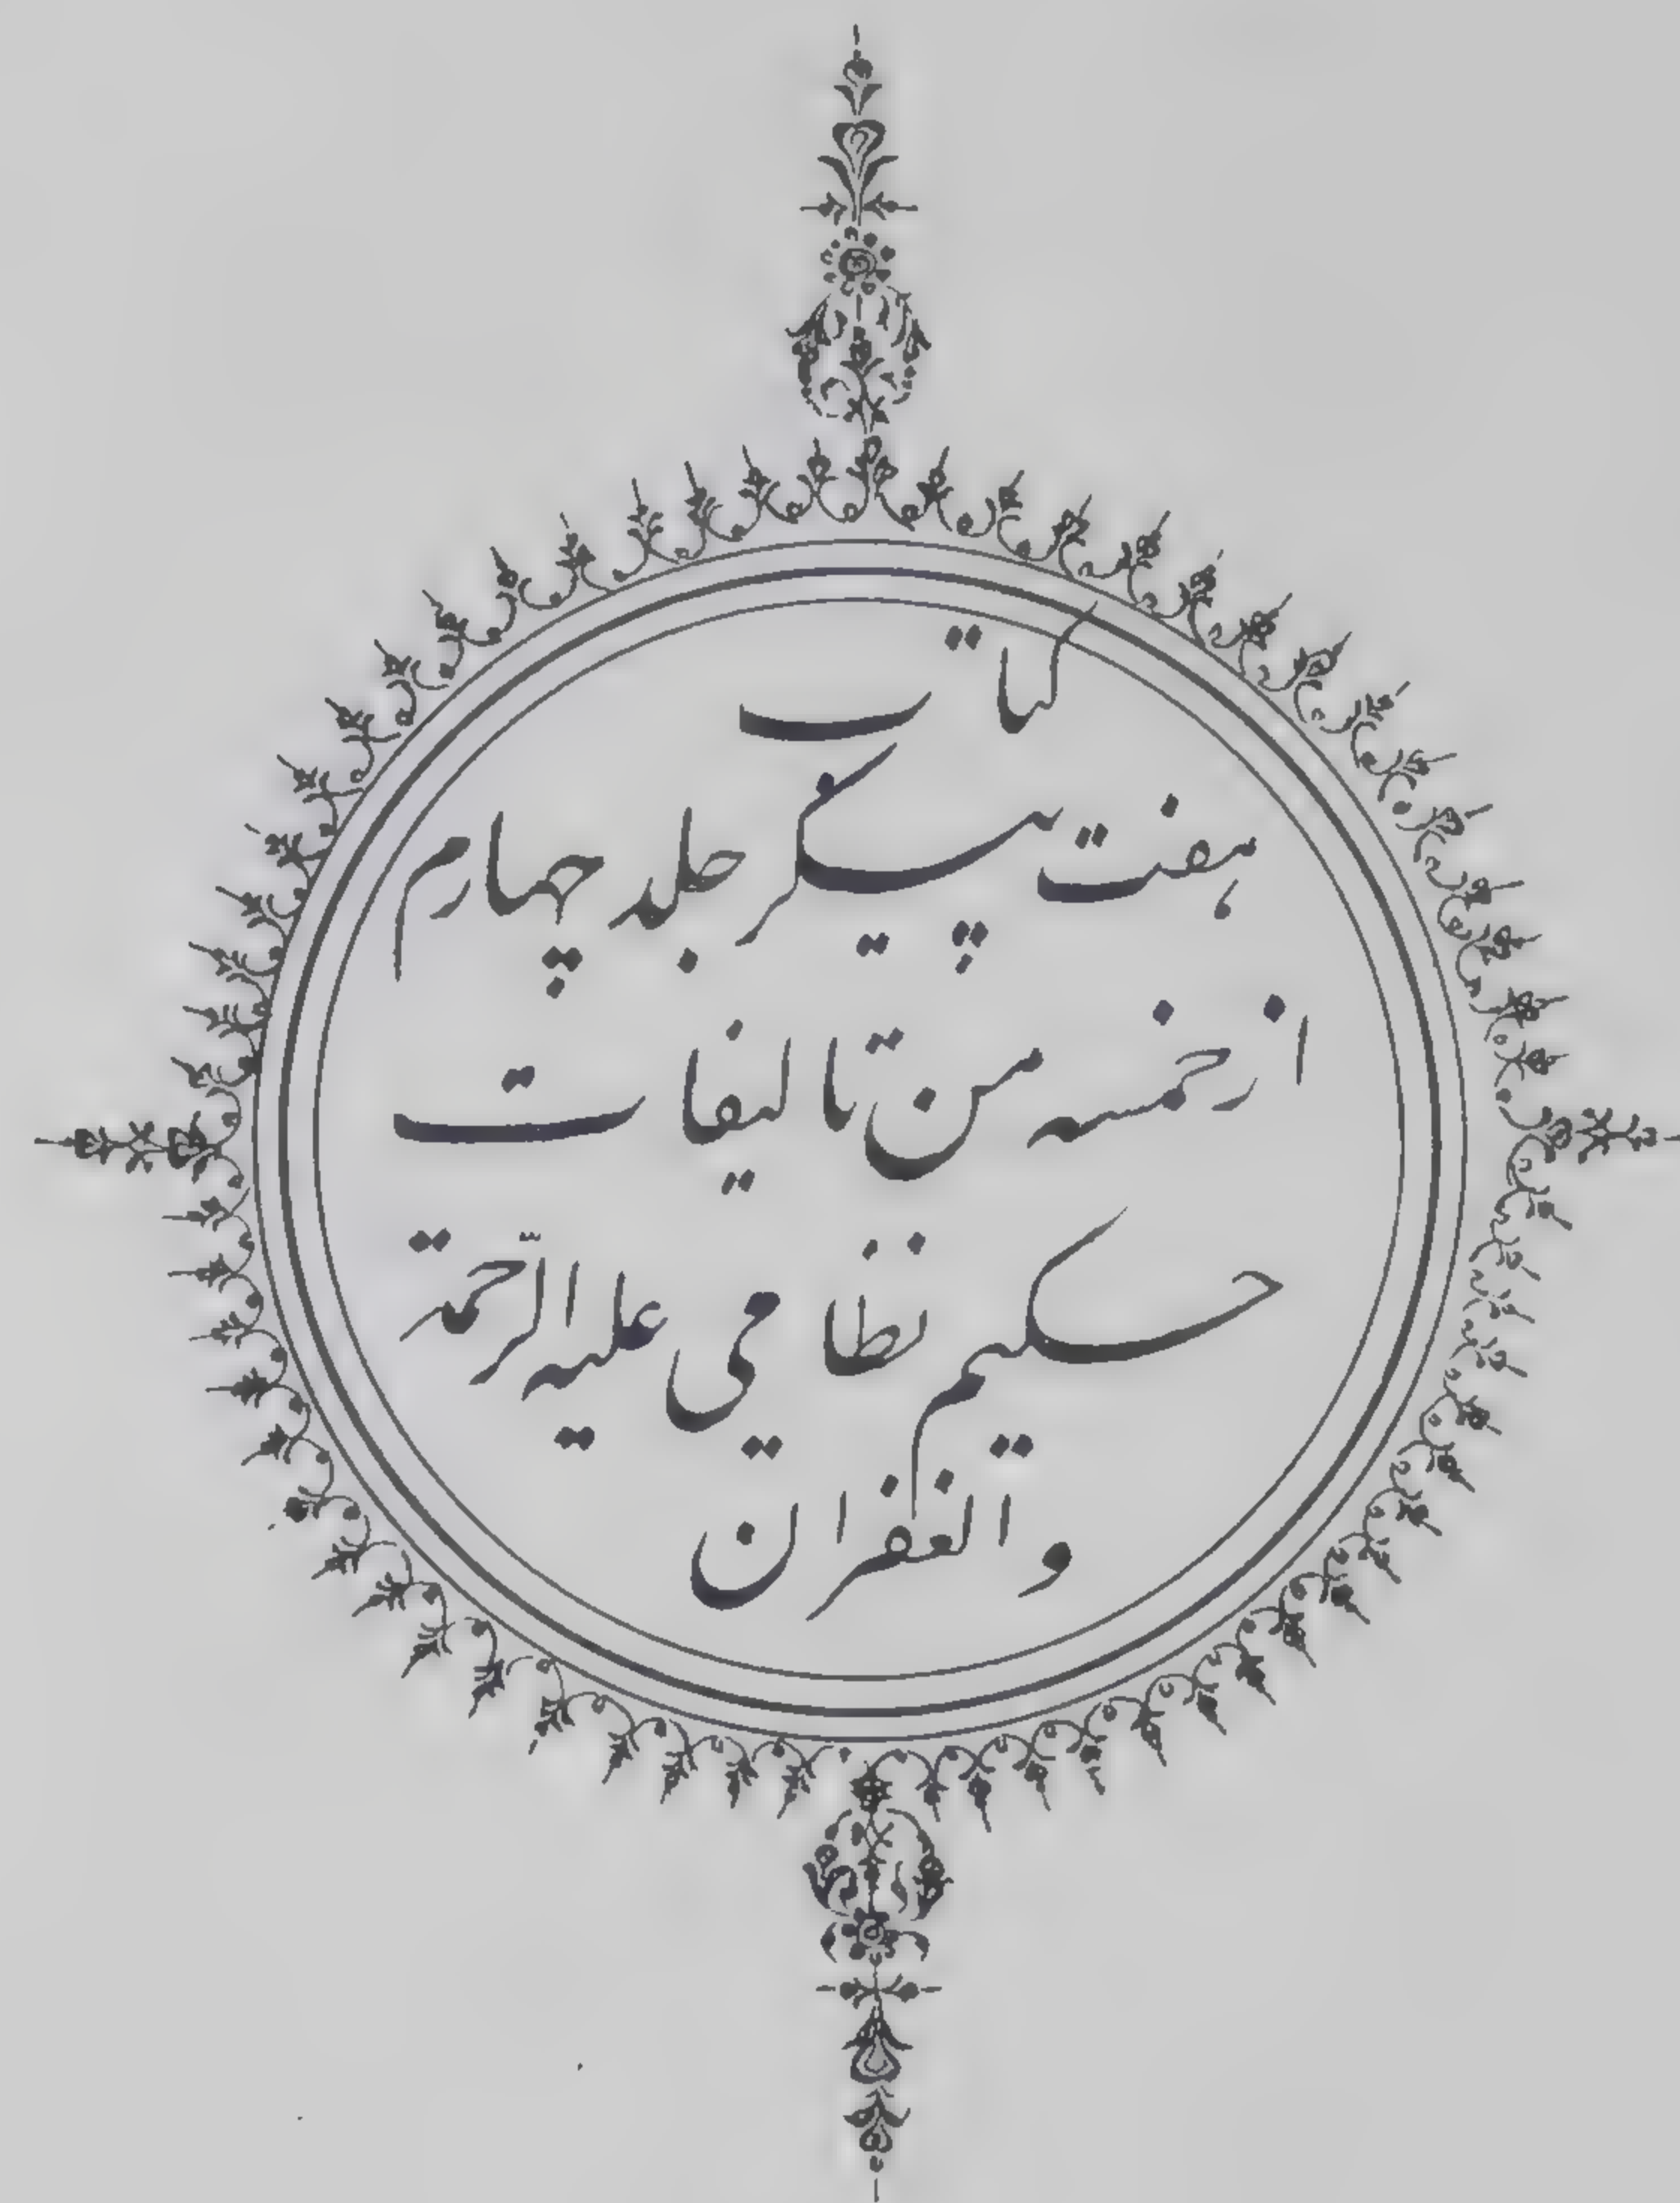 کتاب
هفت پیکر جلد چهارم
از خمسه من تالیفات
حکیم نظامی علیه الرّحمة
و الغفران